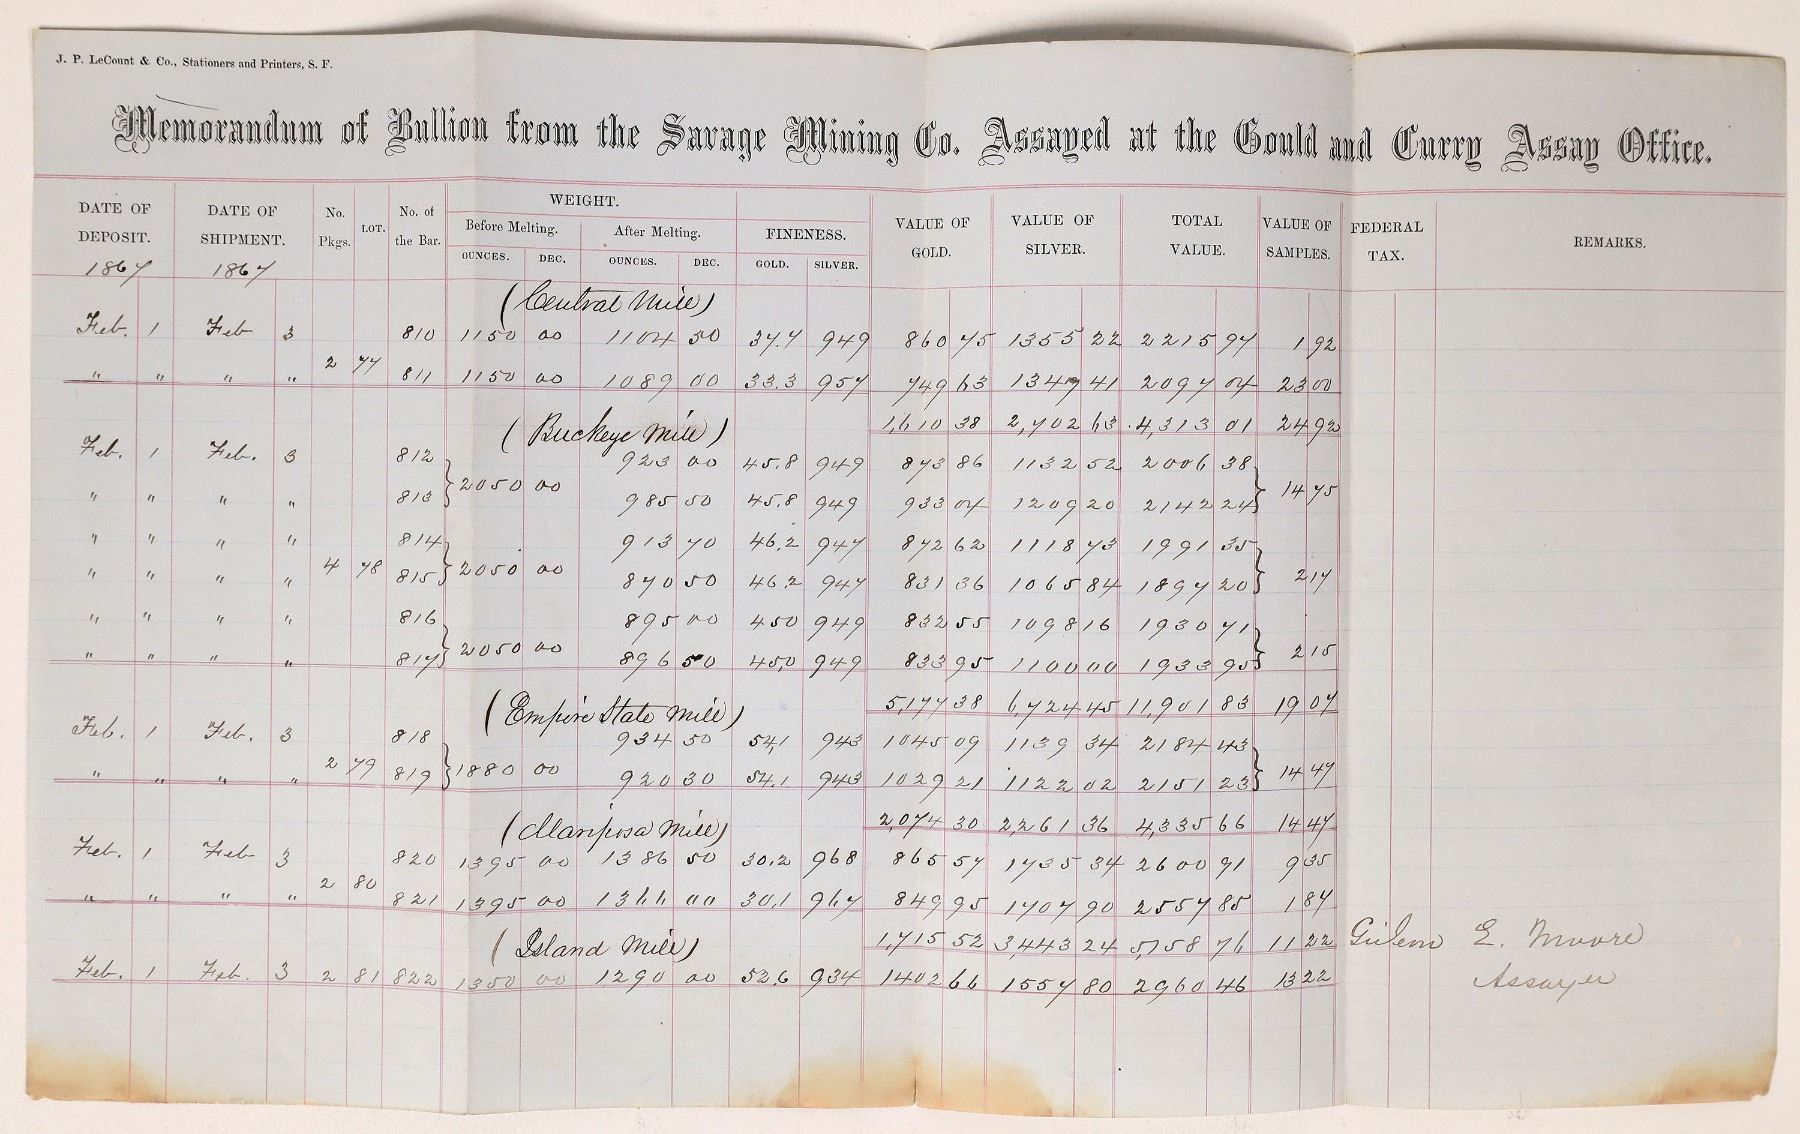 J. P. LeCount & Co., Stationers and Printers, S. F.
Memorandum of Bullion from the Savage Mining Co. Assayed at the Gould and Curry Assay Office.
DATE OF DEPOSIT. DATE OF SHIPMENT. No. Pkgs. LOT. No. of the Bar. WEIGHT. Before Melting. OUNCES. DEC. After Melting. OUNCES. DEC. FINENESS. GOLD. SILVER. VALUE OF GOLD. VALUE OF SILVER. TOTAL VALUE. VALUE OF SAMPLES. FEDERAL TAX. REMARKS.
1867 1867
(Central Mill)
Feb. 1 Feb 3 810 1150 00 1104 50 37.7 949 860 75 1355 22 2215 97 1 92
2 77
" " " " 811 1150 00 1089 00 33.3 957 749 63 1347 41 2097 04 23 00
1,610 38 2,702 63 4,313 01 24 92
(Buckeye Mill)
Feb. 1 Feb. 3 812 923 00 45.8 949 873 86 1132 52 2006 38
2050 00 14 75
" " " " 813 985 50 45.8 949 933 04 1209 20 2142 24
" " " " 814 913 70 46.2 947 872 62 1118 73 1991 35
4 78 2050 00 2 17
" " " " 815 870 50 46.2 947 831 36 1065 84 1897 20
" " " " 816 895 00 450 949 832 55 1098 16 1930 71
2050 00 2 15
" " " " 817 896 50 45,0 949 833 95 1100 00 1933 95
5,177 38 6,724 45 11,901 83 19 07
(Empire State Mill)
Feb. 1 Feb. 3 818 934 50 54,1 943 1045 09 1139 34 2184 43
2 79 1880 00 14 47
" " " " 819 920 30 54.1 943 1029 21 1122 02 2151 23
2,074 30 2,261 36 4,335 66 14 47
(Mariposa Mill)
Feb. 1 Feb 3 820 1395 00 1386 50 30.2 968 865 57 1735 34 2600 91 9 35
2 80
" " " " 821 1395 00 1366 00 30,1 967 849 95 1707 90 2557 85 1 87
1,715 52 3,443 24 5,158 76 11 22
(Island Mill)
Feb. 1 Feb. 3 2 81 822 1350 00 1290 00 52,6 934 1402 66 1557 80 2960 46 13 22
E. Moore
Assayer